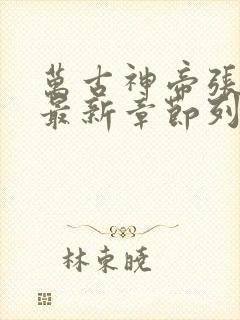 萬古神帝張
最新章節列
林東曉